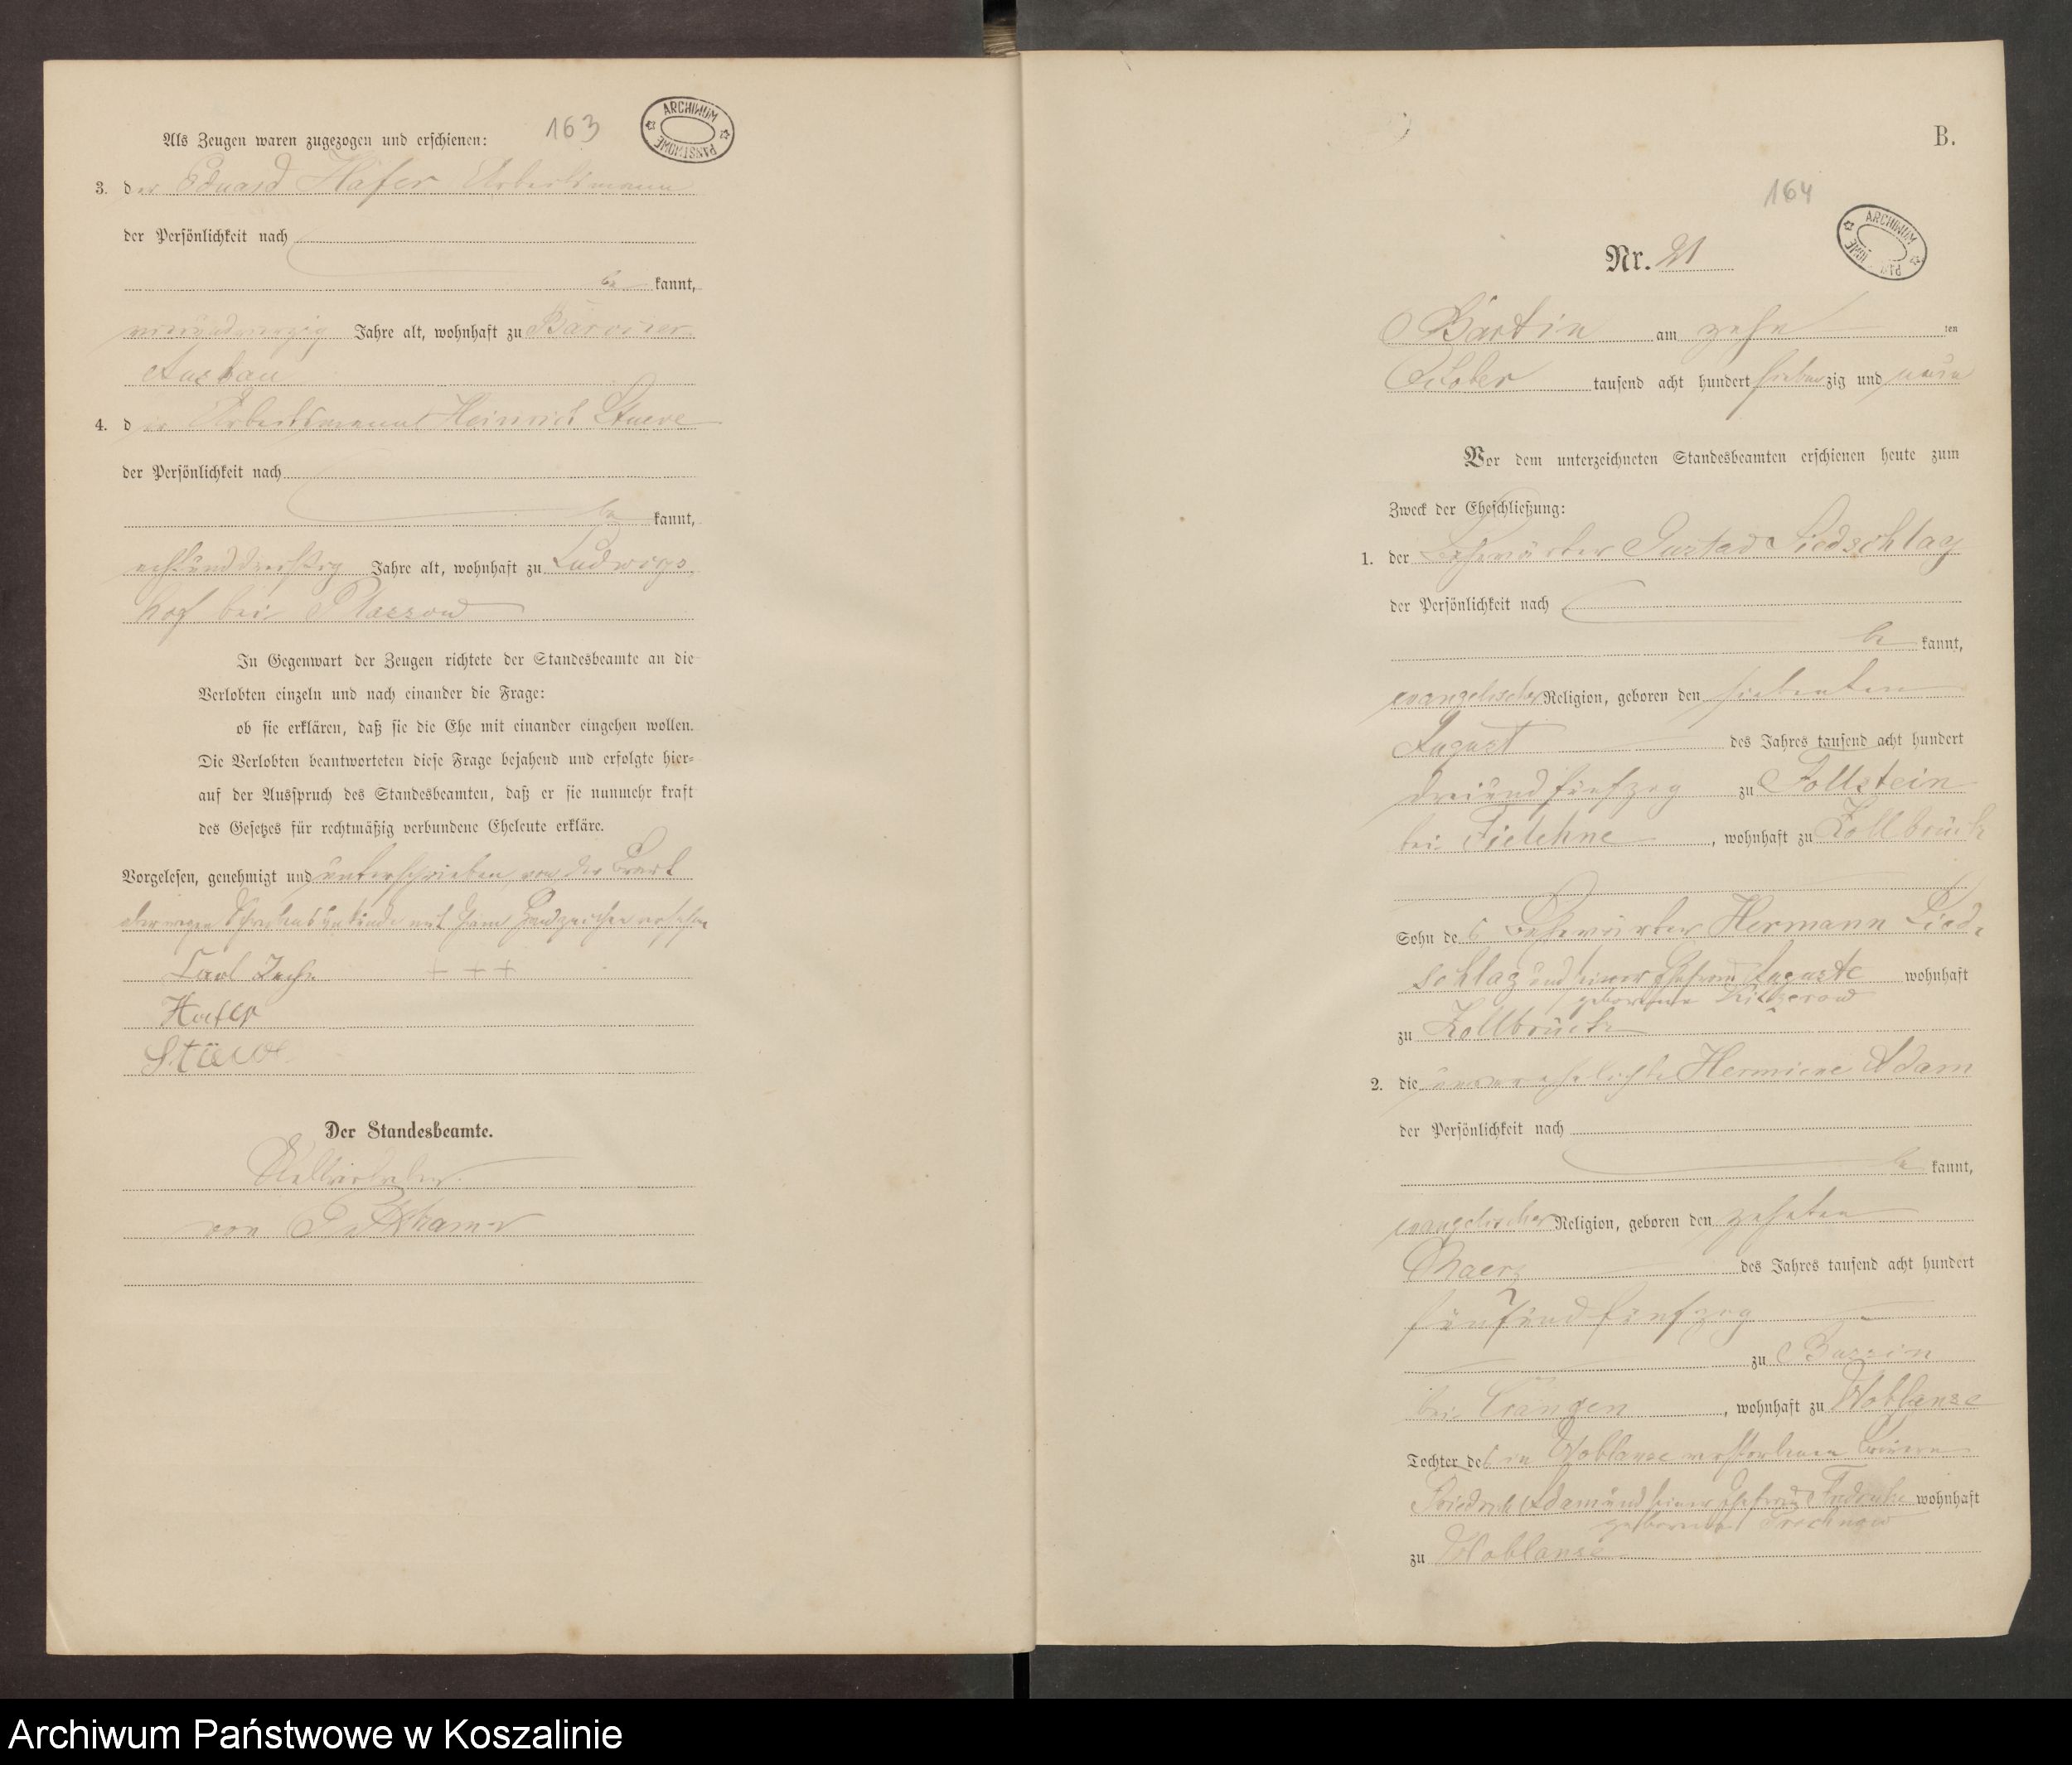 163
ARCHIWUM PAŃSTWOWE
Als Zeugen waren zugezogen und erschienen:
3. der Eduard Hafer Arbeitsmann
der Persönlichkeit nach
be kannt,
Jahre alt, wohnhaft zu
Ausbau
4. der Arbeitsmann Heinrich Stueve
der Persönlichkeit nach
be kannt,
achtunddreißig Jahre alt, wohnhaft zu Ludwigs-
hof bei
In Gegenwart der Zeugen richtete der Standesbeamte an die
Verlobten einzeln und nach einander die Frage:
ob sie erklären, daß sie die Ehe mit einander eingehen wollen.
Die Verlobten beantworteten diese Frage bejahend und erfolgte hier-
auf der Ausspruch des Standesbeamten, daß er sie nunmehr kraft
des Gesetzes für rechtmäßig verbundene Eheleute erkläre.
Vorgelesen, genehmigt und unterschrieben von der Braut
aber wegen Schreibensunkunde mit ihrem Handzeichen versehen
Carl + + +
Hafer
Stüwe
Der Standesbeamte.
von Puttkamer
B.
164
ARCHIWUM
Nr. 21
Bartin am zehn ten
October tausend acht hundert siebenzig und neun
Vor dem unterzeichneten Standesbeamten erschienen heute zum
Zweck der Eheschließung:
1. der Gustav Liedschlag
der Persönlichkeit nach
be kannt,
evangelischer Religion, geboren den siebenten
August des Jahres tausend acht hundert
dreiundfünfzig zu Follstein
bei Filehne, wohnhaft zu Zollbrück
Sohn des Hermann Lied-
schlag und seiner Ehefrau Auguste wohnhaft
geborene
zu Zollbrück
2. die unverehelichte Hermine Adam
der Persönlichkeit nach
be kannt,
evangelischer Religion, geboren den zehnten
Maerz des Jahres tausend acht hundert
fünfundfünfzig
zu
bei Crangen, wohnhaft zu Woblanse
Tochter des in Woblanse verstorbenen
Friedrich Adam und seiner Ehefrau wohnhaft
geborene
zu Woblanse
Archiwum Państwowe w Koszalinie